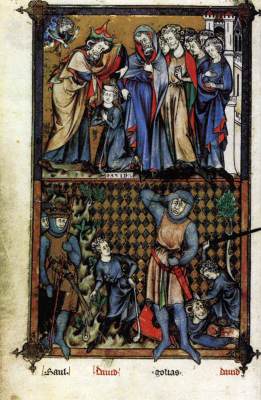 Saul dauid golias dauid